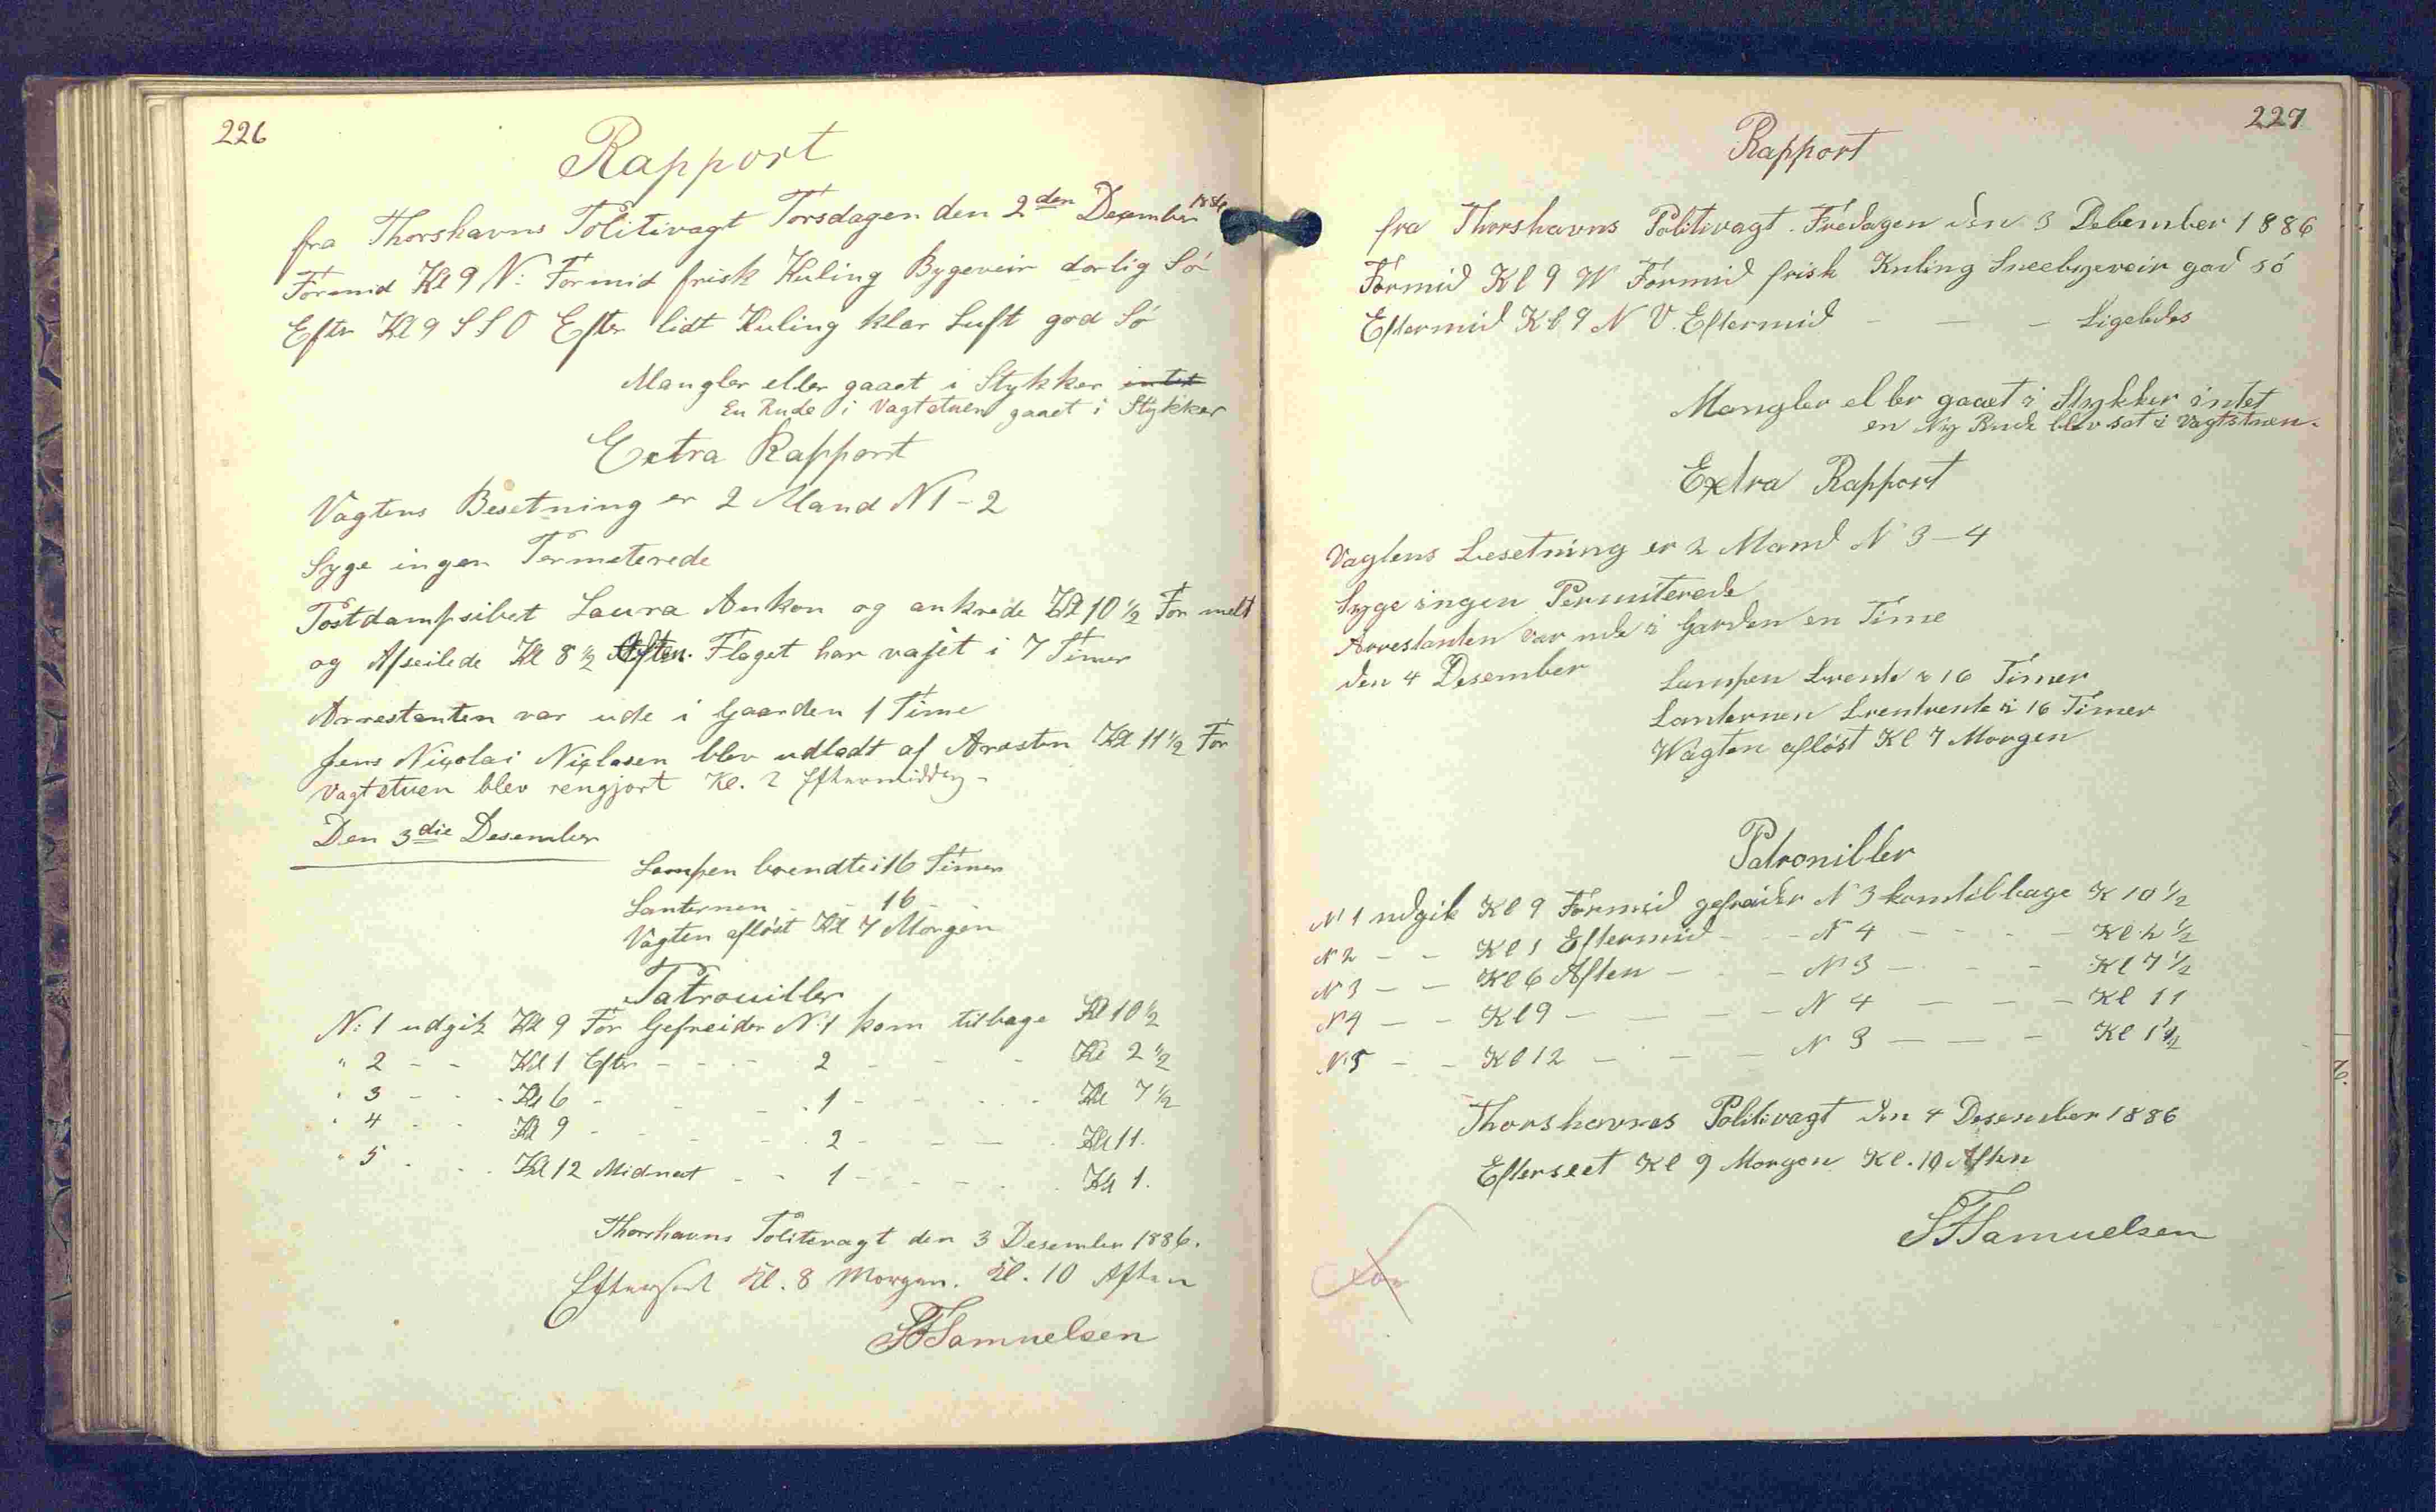 226
Rapport
fra Thorshavns Politivagt Torsdagen den 2den Desember 1886
Formid Kl 9 N: Formid frisk Kuling Bygeveir dorlig Sö
Efter Kl 9 S S O Efter lidt Kuling klar Luft god Sö
Mangler eller gaaet i Stykker intet
En Rude i Vagtstuen gaaet i Stykker
Extra Rapport
Vagtens Besetning er 2 Mand N 1-2
Syge ingen Permeterede
Postdampsibet Laura Ankon og ankrede Kl 10 1/2 For melt
og Afseilede Kl 8 1/2 Aften. Flaget har vajet i 7 Timer
Arrestanten var ude i Gaarden 1 Time
Jens Nicolai Niclasen blev udladt af Arasten Kl 11 1/2 For
Vagtstuen blev rengjort Kl. 2 Eftermiddag -
Den 3die Desember
Lampen brendte i 16 Timer
Lanternen - - 16 -
Vagten aflöst Kl 7 Morgen
Patrouiller
N: 1 udgik Kl 9 For Gefreider N: 1 kom tilbage Kl 10 1/2
" 2 - - Kl 1 Efter - - - - 2 - - - Kl 2 1/2
" 3 - - - Kl 6 - - - - 1 - - - - Kl 7 1/2
" 4 - - Kl 9 - - - - - 2 - - - Kl 11.
" 5 - - - Kl 12 Midnat - - 1 - - - - Kl 1.
Thorshavns Politivagt den 3 Desember 1886.
Efterseet Kl. 8 Morgen. Kl. 10 Aften
Samuelsen
227
Rapport
fra Thorshavns Politivagt. Fredagen den 3 December 1886
Formid Kl 9 W Formid frisk Kuling Sneebygeveir god sö
Eftermid Kl 9 N V. Eftermid - - - Ligeledes
Mangler eller gaaet i Stykker intet
en Ny Rude blev sat i Vagtstuen.
Extra Rapport
Vagtens Besetning er 2 Mand N 3-4
Syge ingen Permiterede
Arrestanten var ude i Garden en Time
den 4 Desember
Lampen brente i 16 Timer
Lanternen brentrente i 16 Timer
Wagten aflöst Kl 7 Morgen
Patrouiller
N 1 udgik Kl 9 Formid gefreider N 3 kom tilbage K 10 1/2
N 2 - - Kl 1 Eftermid - - - N 4 - - - - Kl 2 1/2
N 3 - - Kl 6 Aften - - - N 3 - - - Kl 7 1/2
N 4 - - Kl 9 - - - - N 4 - - - Kl 11
N 5 - - Kl 12 - - - N 3 - - - Kl 1 1/2
Thorshavnes Politivagt den 4 Desember 1886
Efterseet Kl 9 Morgen Kl. 10 Aften
Samuelsen